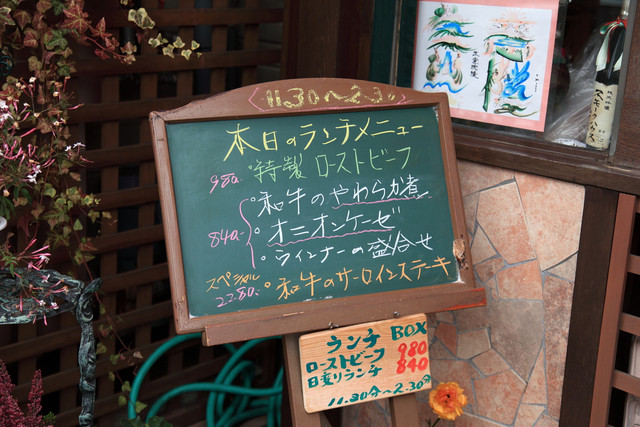 11.30〜2.30
本日のランチメニュー
980- 特製 ローストビーフ
・和牛のやわらか煮
840- ・オニオンケーゼ
・ウインナーの盛合せ
スペシャル
2280- ・和牛のサーロインステーキ
ランチ BOX
ローストビーフ 980
日変りランチ 840
11.30〜2.30